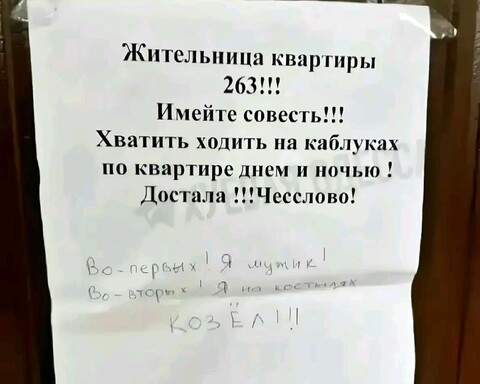 Жительница квартиры
263!!!
Имейте совесть!!!
Хватить ходить на каблуках
по квартире днем и ночью !
Достала !!!Чесслово!
Во-первых! Я мужик!
Во-вторых! Я на костылях
КОЗЁЛ!!!